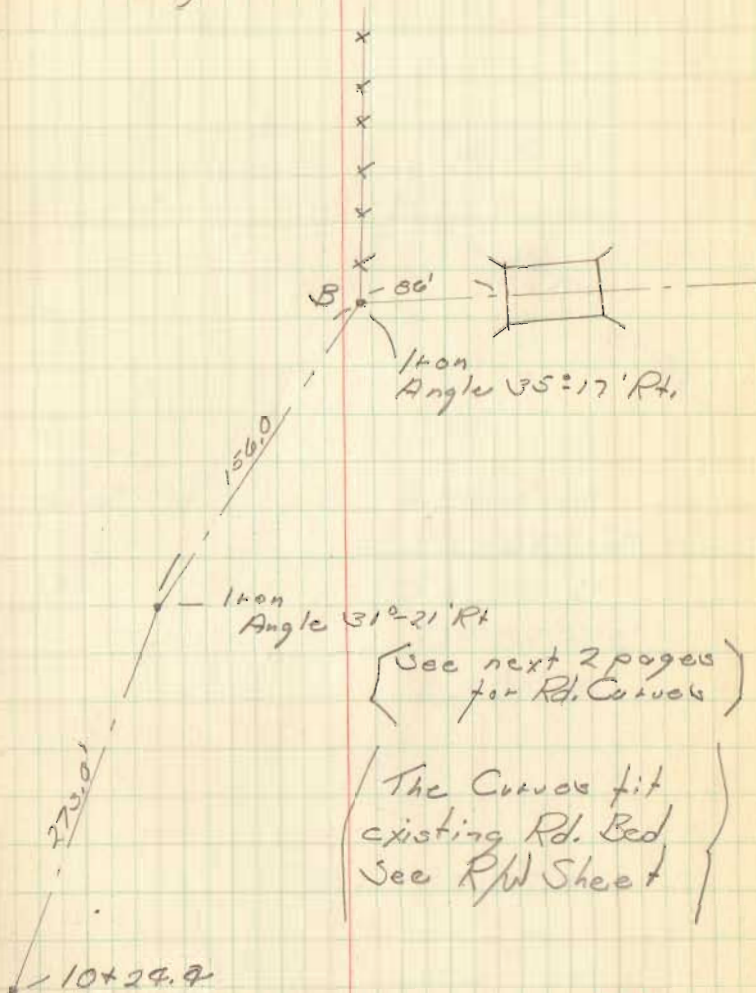 B
86'
Iron
Angle 35°-17' Rt.
156.0
Iron
Angle 31°-21' Rt
(See next 2 pages
for Rd. Curves)
273.0'
(The Curves fit
existing Rd. Bed
See R/W Sheet)
10+24.4